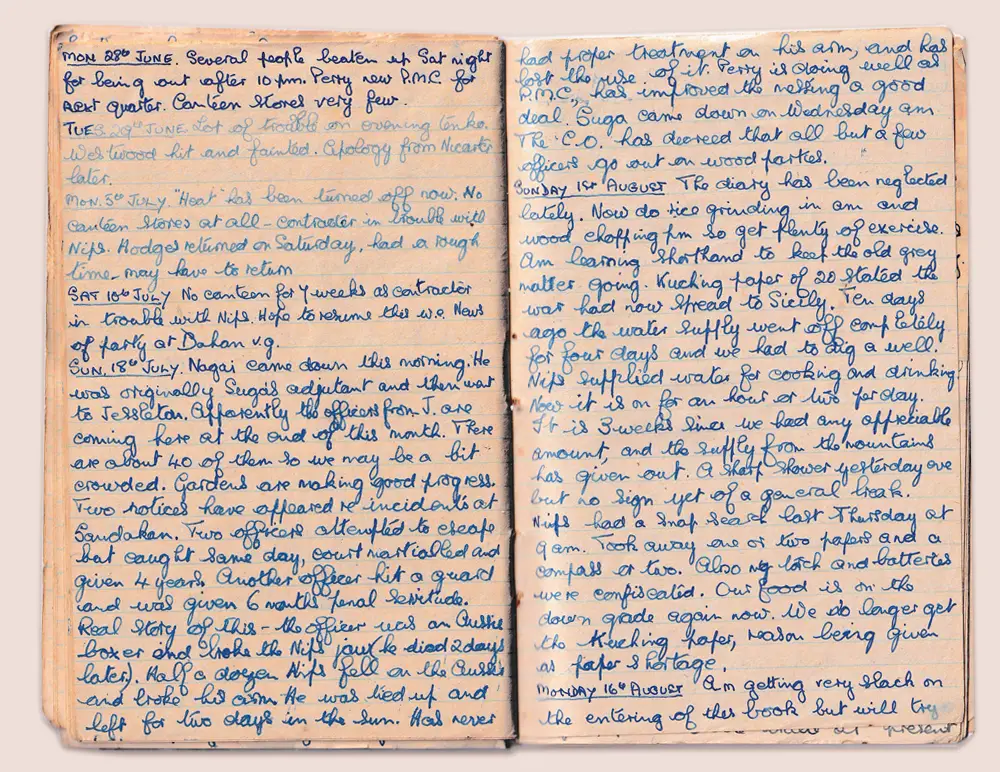 MON 28th JUNE. Several people beaten up Sat night
for being out after 10 pm. Perry new P.M.C. for
next quarter. Canteen stores very few.
TUES. 29th JUNE Lot of trouble on evening tenko.
Westwood hit and fainted. Apology from
later.
MON. 5th JULY. "Heat" has been turned off now. No
canteen stores at all - contractor in trouble with
Nips. Hodges returned on Saturday, had a rough
time - may have to return
SAT 10th JULY No canteen for 4 weeks as contractor
in trouble with Nips. Hope to resume this w.e. News
of party at Dahan v.g.
SUN. 18th JULY. Nagai came down this morning. He
was originally Suga's adjutant and then went
to Jesselton. Apparently the officers from J. are
coming here at the end of this month. There
are about 40 of them so we may be a bit
crowded. Gardens are making good progress.
Two notices have appeared re incidents at
Sandakan. Two officers attempted to escape
but caught same day, court martialled and
given 4 years. Another officer hit a guard
and was given 6 months penal servitude.
Real Story of this - the officer was an Aussie
boxer and broke the Nips jaw (he died 2 days
later). Half a dozen Nips fell on the Aussie
and broke his arm. He was tied up and
left for two days in the sun. Has never
had proper treatment on his arm, and has
lost the use of it. Perry is doing well as
P.M.C., has improved the messing a good
deal. Suga came down on Wednesday am.
The C.O. has decreed that all but a few
officers go out on wood parties.
SUNDAY 1st AUGUST The diary has been neglected
lately. Now do rice grinding in am and
wood chopping pm so get plenty of exercise.
Am learning shorthand to keep the old grey
matter going. Kuching paper of 20 stated the
war had now spread to Sicily. Ten days
ago the water supply went off completely
for four days and we had to dig a well.
Nips supplied water for cooking and drinking.
Now it is on for an hour or two per day.
It is 3 weeks since we had any appreciable
amount, and the supply from the mountains
has given out. A sharp shower yesterday eve
but no sign yet of a general break.
Nips had a snap search last Thursday at
9 am. Took away one or two papers and a
compass or two. Also my torch and batteries
were confiscated. Our food is on the
down grade again now. We no longer get
the Kuching paper, reason being given
as paper shortage.
MONDAY 16th AUGUST Am getting very slack on
the entering of this book but will try
present